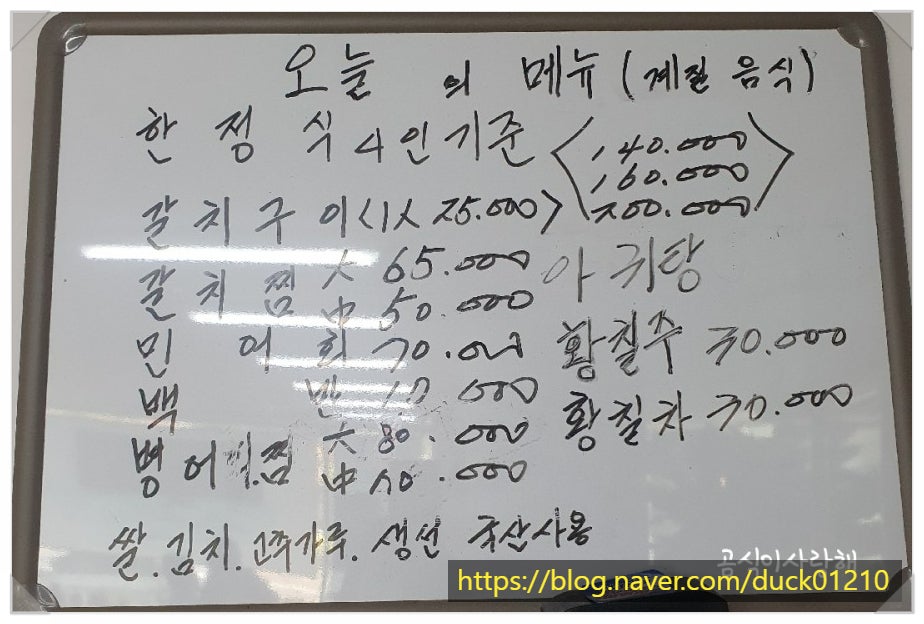 오늘의 메뉴 (계절 음식)
한정식 4인기준 <140.000
160.000
200.000>
갈치구이 <1人 25.000>
갈치찜 大 65.000
中 50.000
아귀탕
민어회 70.000
황칠주 30.000
백반 10.000
황칠차 30.000
병어.찜 大 80.000
中 60.000
쌀.김치.고추가루.생선 국산사용
곰신이사랑해
https://blog.naver.com/duck01210